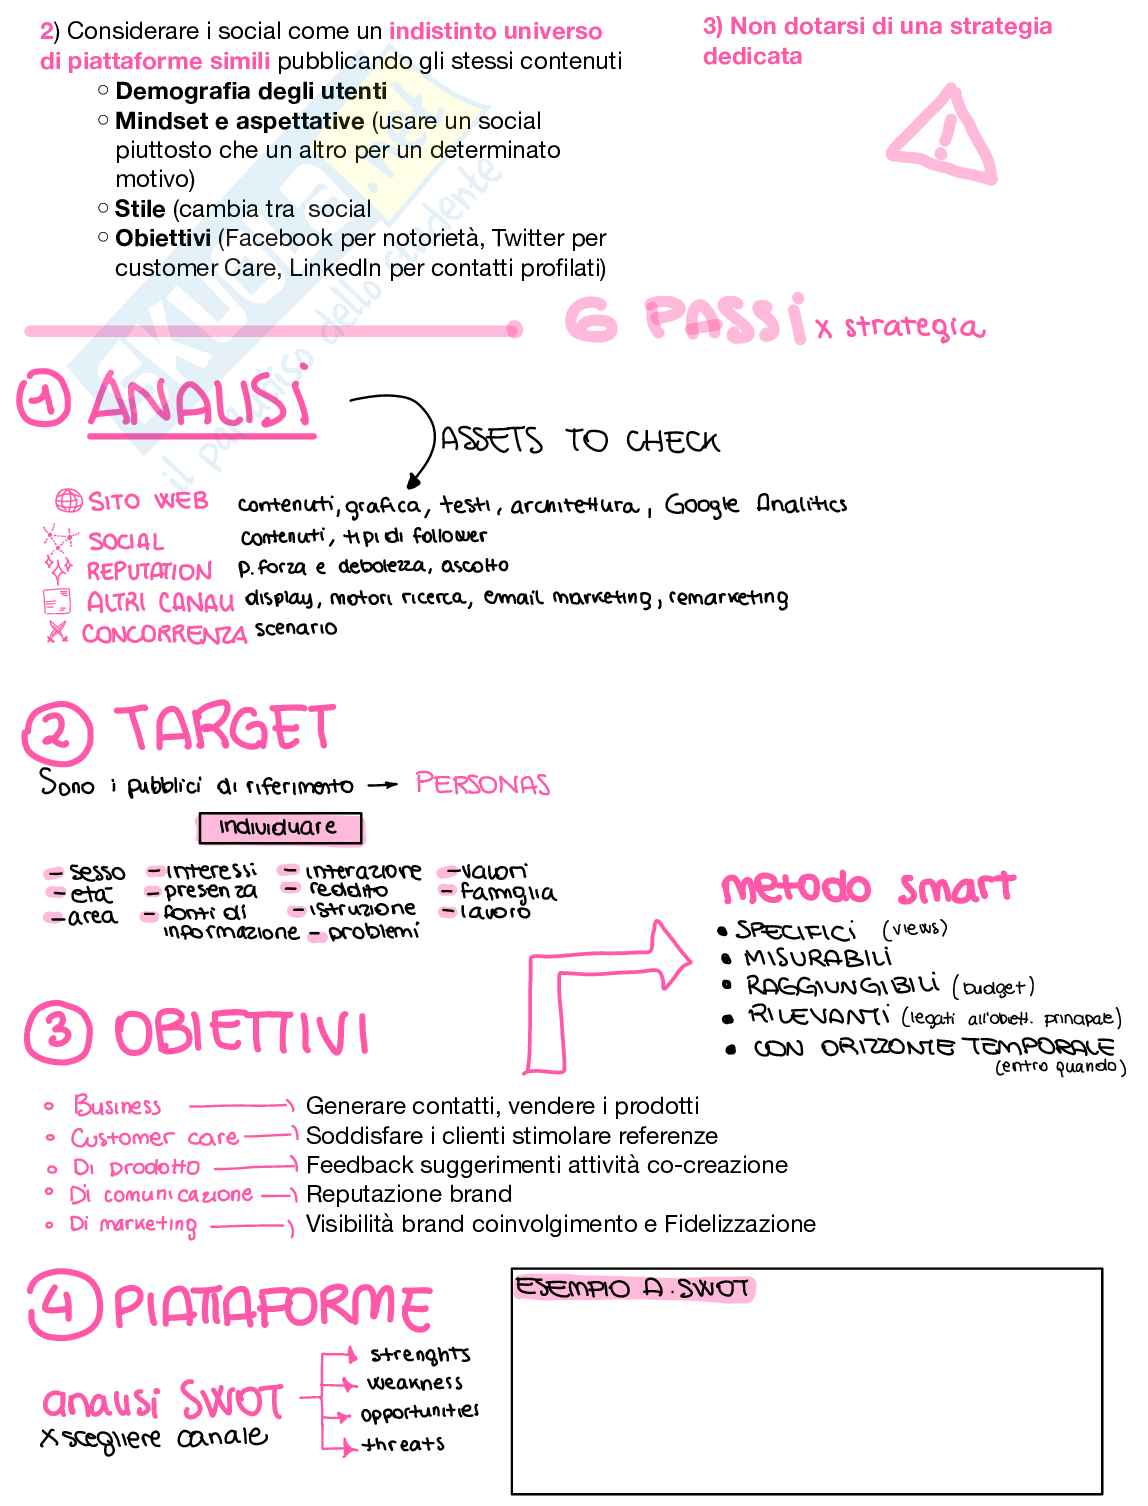 2) Considerare i social come un indistinto universo
di piattaforme simili pubblicando gli stessi contenuti
○ Demografia degli utenti
○ Mindset e aspettative (usare un social
piuttosto che un altro per un determinato
motivo)
○ Stile (cambia tra  social
○ Obiettivi (Facebook per notorietà, Twitter per
customer Care, LinkedIn per contatti profilati)
3) Non dotarsi di una strategia
dedicata
!
SKUOLA.net
il paradiso dello studente
6 PASSI x strategia
1 ANALISI
ASSETS TO CHECK
SITO WEB contenuti, grafica, testi, architettura, Google Analitics
SOCIAL contenuti, tipi di follower
REPUTATION p. forza e debolezza, ascolto
ALTRI CANALI display, motori ricerca, email marketing, remarketing
CONCORRENZA scenario
2 TARGET
Sono i pubblici di riferimento → PERSONAS
individuare
- sesso - interessi - interazione - valori
- età - presenza - reddito - famiglia
- area - fonti di - istruzione - lavoro
informazione - problemi
metodo smart
• SPECIFICI (views)
• MISURABILI
• RAGGIUNGIBILI (budget)
• RILEVANTI (legati all'obiett. principale)
• CON ORIZZONTE TEMPORALE
(entro quando)
3 OBIETTIVI
• Business Generare contatti, vendere i prodotti
• Customer care Soddisfare i clienti stimolare referenze
• Di prodotto Feedback suggerimenti attività co-creazione
• Di comunicazione Reputazione brand
• Di marketing Visibilità brand coinvolgimento e Fidelizzazione
4 PIATTAFORME
analisi SWOT
x scegliere canale
strenghts
weakness
opportunities
threats
ESEMPIO A. SWOT